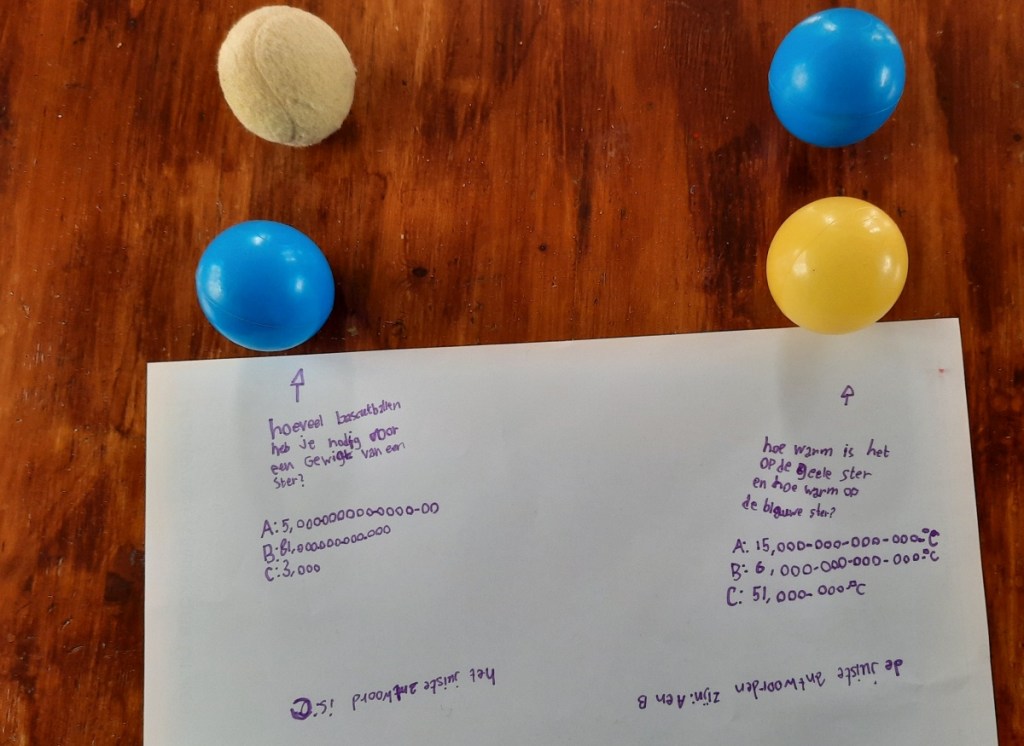 hoeveel bascetballen
heb je nodig voor
een Gewigt van een
Ster?
A: 5,000000000000-00
B: 81,000.000.000.000
C: 3,000
het juiste antwoord is: C
hoe warm is het
op de geele ster
en hoe warm op
de blauwe ster?
A: 15,000-000-000-000-°C
B: 6,000-000-000-000-°C
C: 51,000-000°C
de juiste antwoorden zijn: A en B